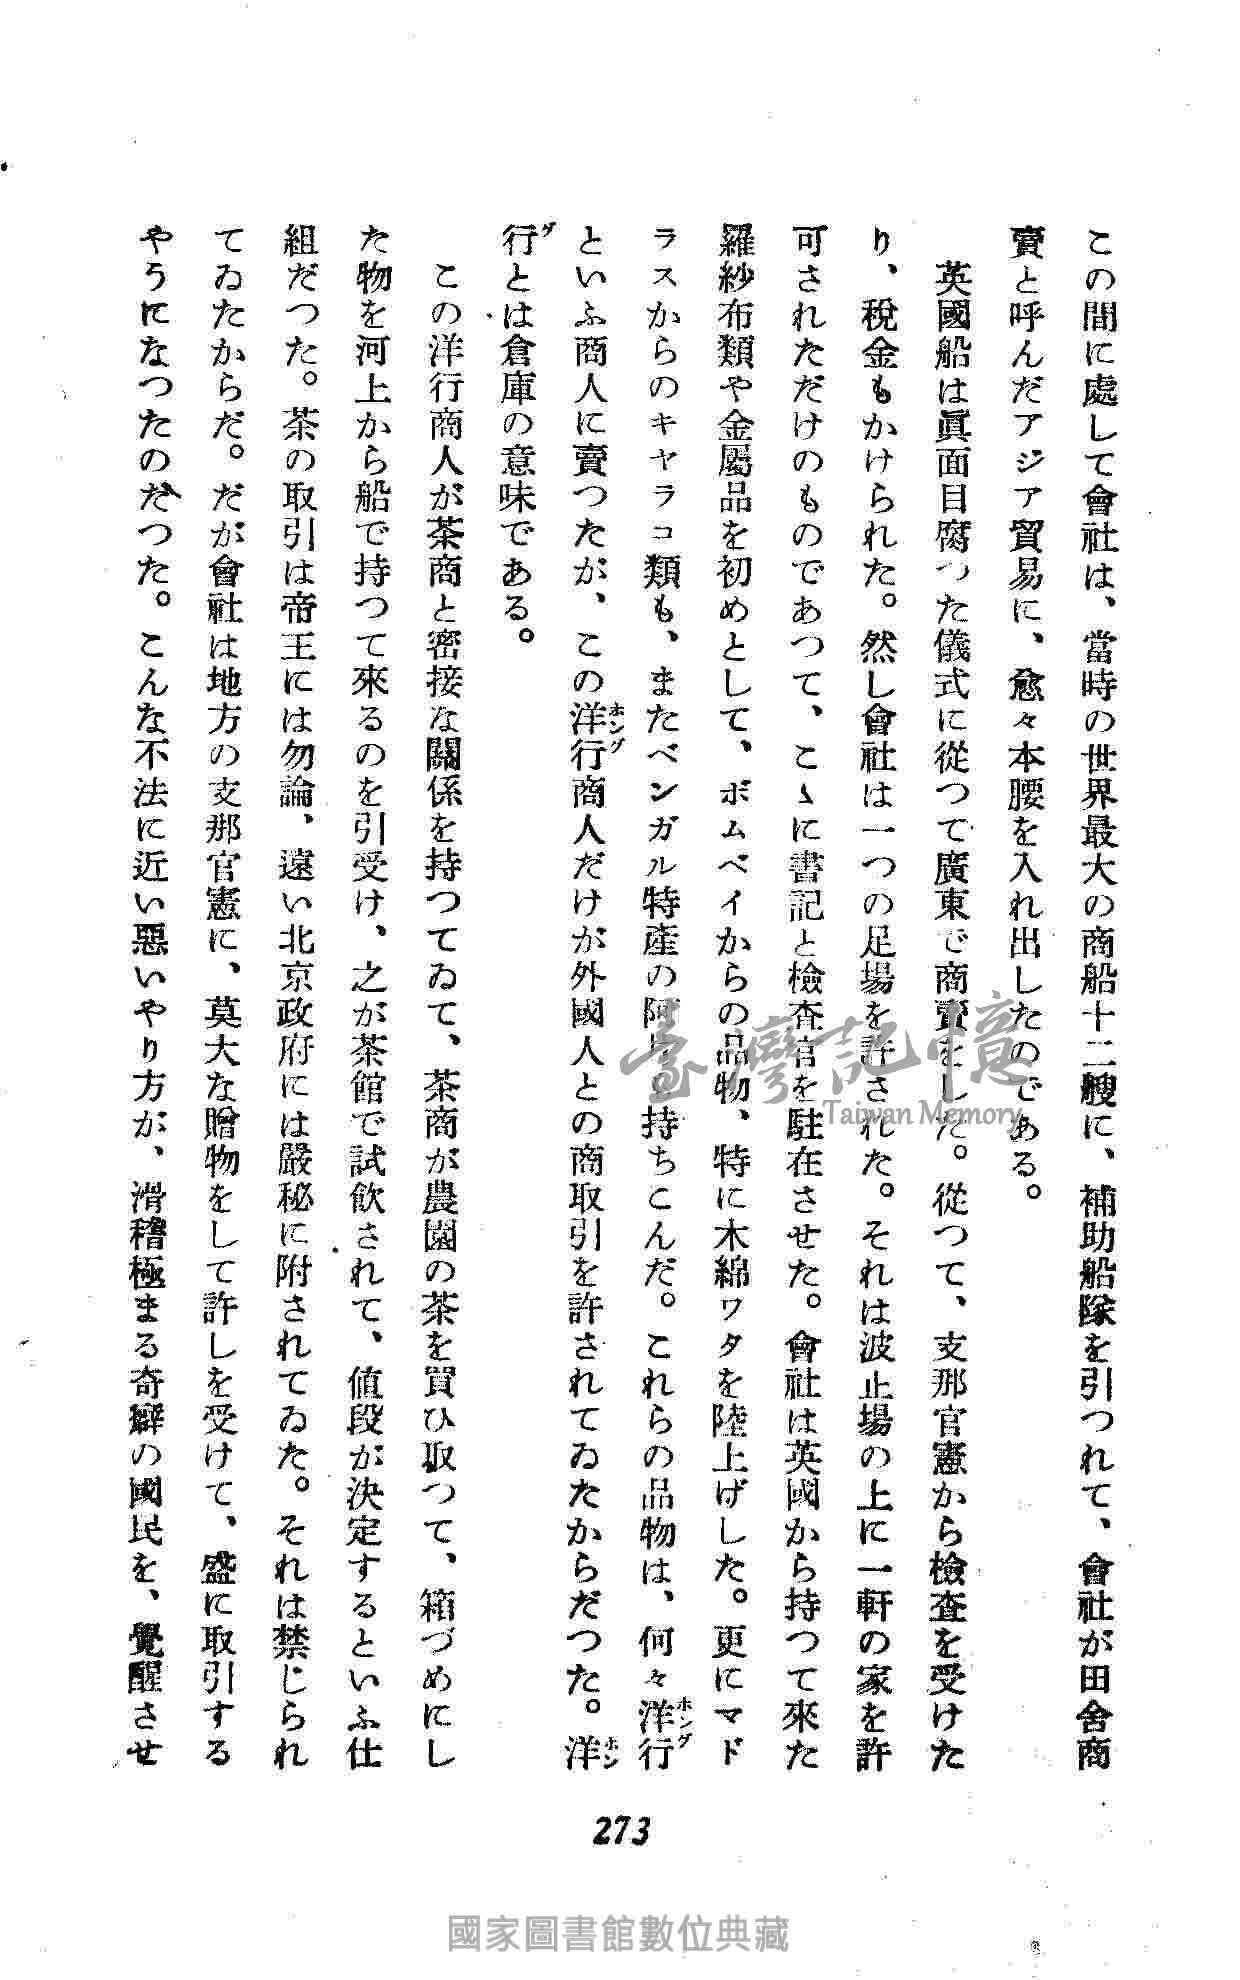 この間に處して會社は、當時の世界最大の商船十二艘に、補助船隊を引つれて、會社が田舍商
賣と呼んだアジア貿易に、愈々本腰を入れ出したのである。
英國船は眞面目腐つた儀式に從つて廣東で商賣をした。從つて、支那官憲から檢査を受けた
り、稅金もかけられた。然し會社は一つの足場を許された。それは波止場の上に一軒の家を許
可されただけのものであつて、こゝに書記と檢査官を駐在させた。會社は英國から持つて來た
羅紗布類や金屬品を初めとして、ボムベイからの品物、特に木綿ワタを陸上げした。更にマド
ラスからのキヤラコ類も、またベンガル特產の阿片も持ちこんだ。これらの品物は、何々洋行
ホング
といふ商人に賣つたが、この洋行商人だけが外國人との商取引を許されてゐたからだつた。洋
ホング
ホン
行とは倉庫の意味である。
グ
この洋行商人が茶商と密接な關係を持つてゐて、茶商が農園の茶を買ひ取つて、箱づめにし
た物を河上から船で持つて來るのを引受け、之が茶館で試飮されて、値段が決定するといふ仕
組だつた。茶の取引は帝王には勿論、遠い北京政府には嚴秘に附されてゐた。それは禁じられ
てゐたからだ。だが會社は地方の支那官憲に、莫大な贈物をして許しを受けて、盛に取引する
やうになつたのだつた。こんな不法に近い惡いやり方が、滑稽極まる奇癖の國民を、覺醒させ
273
臺灣記憶
Taiwan Memory
國家圖書館數位典藏